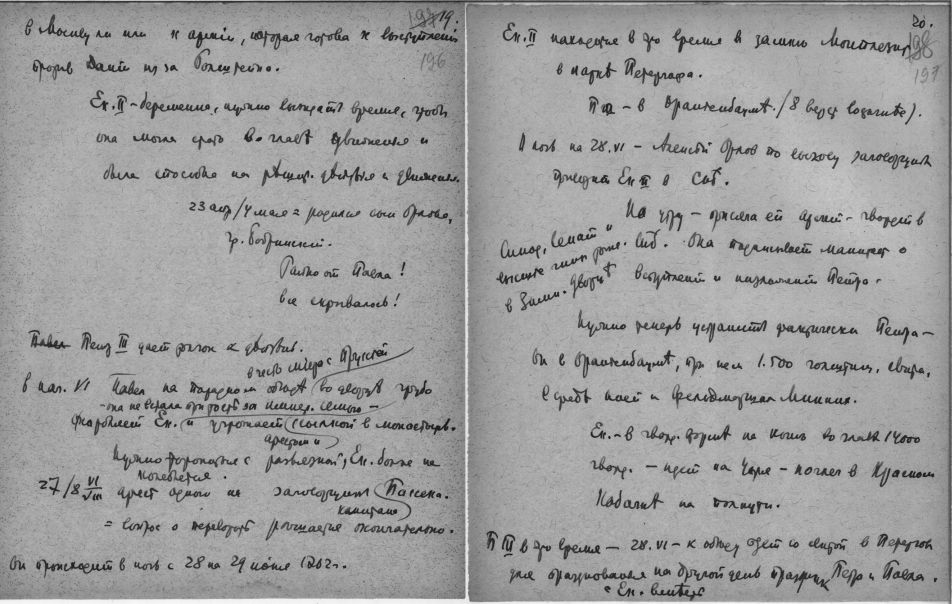 19.
196
в Москву ли или к армии, которая готова к выступлению
против Дании из за Голштейна.
Ек. II – беременна, нужно выждать время, чтобы
она могла стать во главе движения и
была способна на решит. действия и движения.
23 апр/4 мая = родился сын Орлова,
гр. Бобринский.
Только от Павла!
все скрывалось!
Петр III дает толчок к действию.
в честь мира с Пруссией
в нач. VI Павел на парадном обеде во дворце грубо
– она не встала при тосте за импер. семью –
оскорбляет Ек. и угрожает ссылкой в монастырь.
арестом и
Нужно торопиться с развязкой, Ек. более не
колеблется.
27/8 VI/VII арест одного из заговорщиков Пассека.
капитана
= вопрос о перевороте решается окончательно.
Он происходит в ночь с 28 на 29 июня 1762 г.
20.
198
197
Ек. II находится в это время в замке Монплезир
в парке Петергофа.
П – в Ораниенбауме. /8 верст
В ночь на 28.VI – Алексей Орлов по вызову заговорщиков
Ек. II в Спб.
На утру – присяга ей армии – гвардии в
Синод, Сенат и
высшие Спб. Она подписывает манифест о
в Зимн. дворце вступлении и низложении Петра.
Нужно теперь устранить фактически Петра –
он в Ораниенбауме, при нем 1.500 голштинц, свита,
в среде коей и фельдмаршал Миних.
Ек. – в гвард. форме на коне во главе 14000
гвард. – идет на – ночлег в Красном
Кабачке на полпути.
П III в это время – 28.VI – к обеду едет со свитой в Петергоф
для празднования на другой день Петра и Павла.
с Ек. вместе